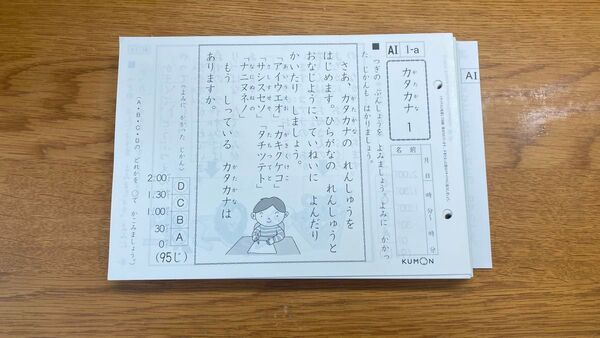 AI 1-a
カタカナ 1
かたかな
名前
月 日 時 分〜 時 分
■ つぎの ぶんしょうを よみましょう。よみに かかった じかんも はかりましょう。
さあ、カタカナの れんしゅうを
はじめます。ひらがなの れんしゅうと
おなじように、ていねいに よんだり
かいたり しましょう。
「アイウエオ」「カキクケコ」
「サシスセソ」「タチツテト」
「ナニヌネノ」
もう しっている カタカナは
ありますか。
(よみに かかった じかん)
2:00
1:30
1:00
30
0
D
C
B
A
(95じ)
(A・B・C・Dの、どれかを ○で かこみましょう。)
KUMON
AI